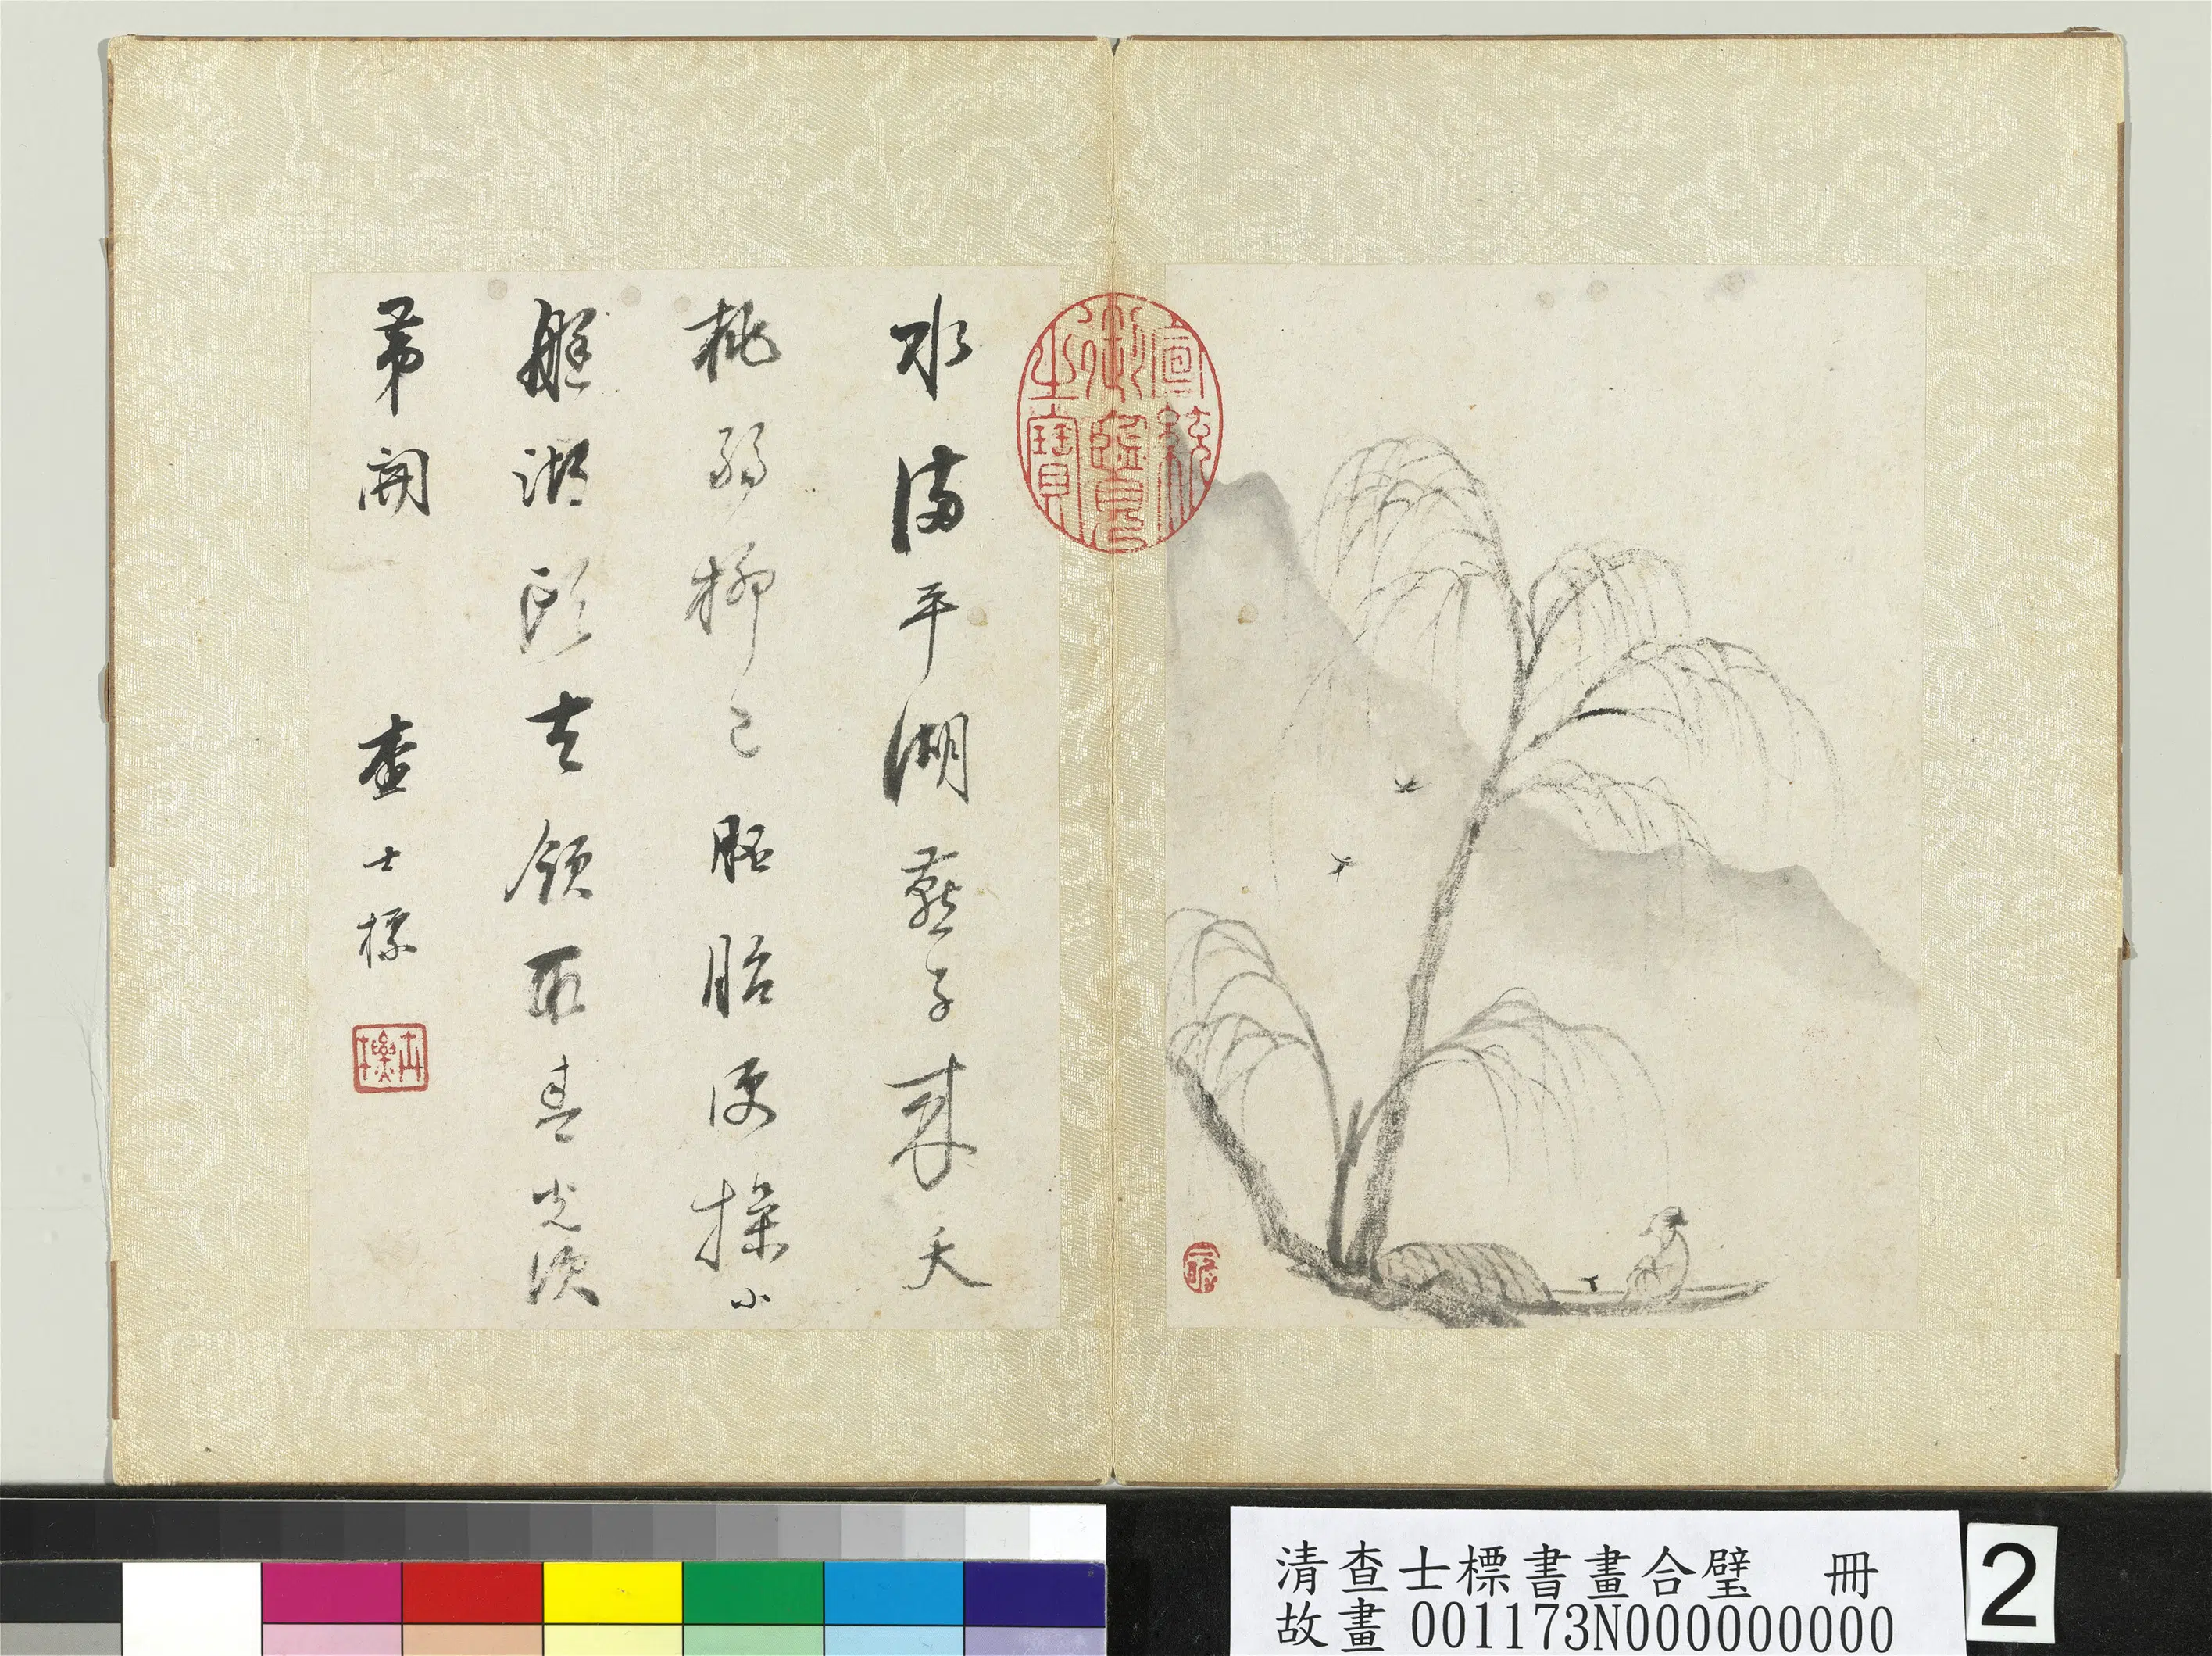 水滿平湖燕子來夭
桃弱柳已胚胎便操小
艇湖頭去領取春光次
第開 查士標
士標
宣統御覽之寶
清查士標書畫合璧 冊
故畫 001173N000000000
2